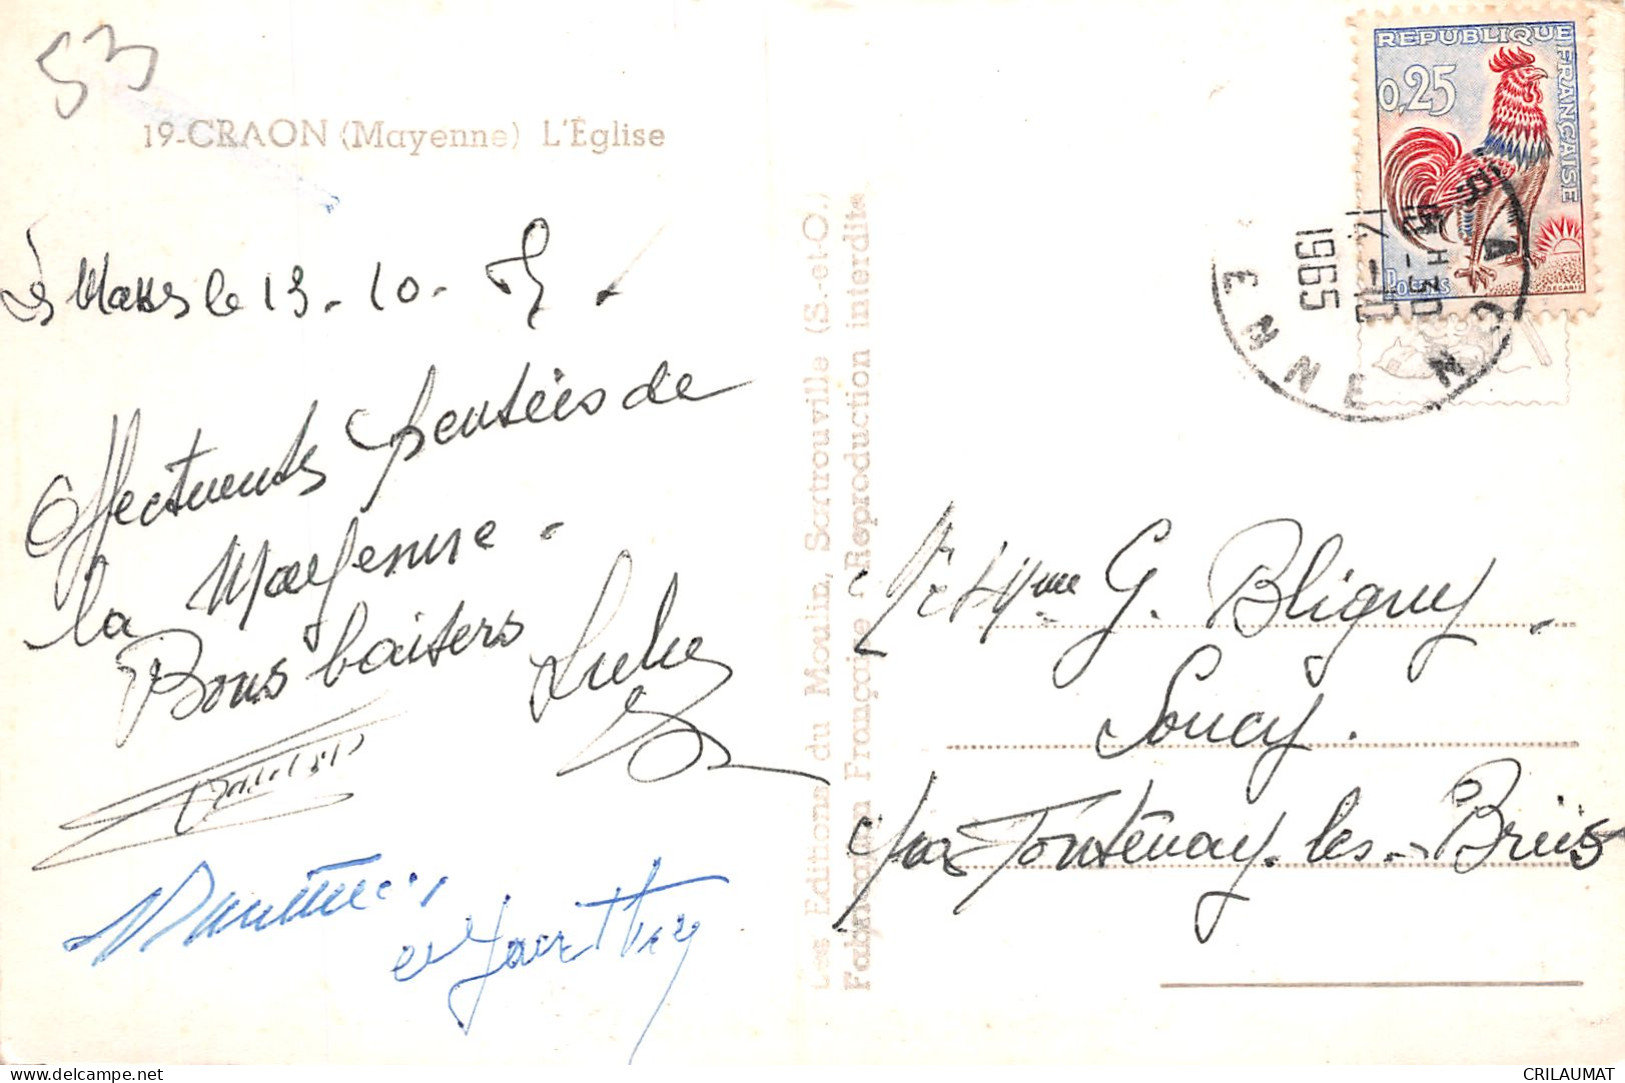 53
19-CRAON (Mayenne) L'Église
le 13-10-
Affectueuses pensées de
la Mayenne.
Bons baisers
Les Editions du Moulin, Sartrouville (S.-et-O.)
Fabrication Française - Reproduction interdite
REPUBLIQUE FRANÇAISE
0,25
POSTES
DECARIS
15 H 30
14-10
1965
CRAON
ENNE
Mr et Mme G. Bligny
Soucy.
par Fontenay-les-Briis
CRILAUMAT